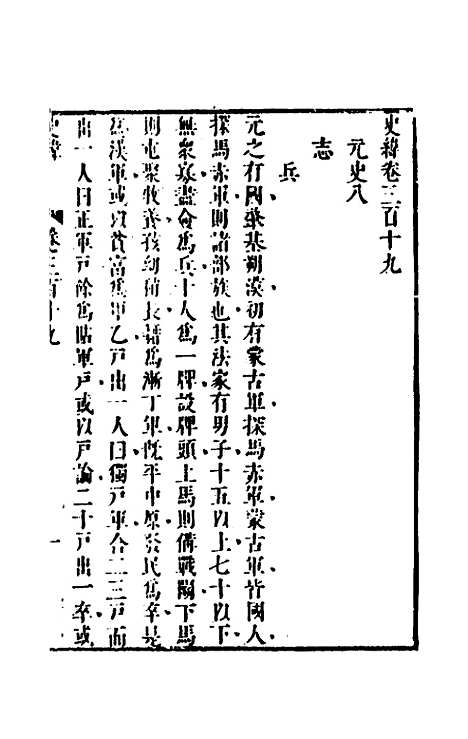 史緯卷三百十九
元史八
志
兵
元之有國肇基朔漠初有蒙古軍探馬赤軍蒙古軍皆國人
探馬赤軍則諸部族也其法家有男子十五以上七十以下
無衆寡盡僉爲兵十人爲一牌設牌頭上馬則備戰鬭下馬
則屯聚牧養孩幼稍長籍爲漸丁軍旣平中原發民爲卒是
爲漢軍或以貧富爲甲乙戸出一人曰獨戸軍合二三戸而
出一人曰正軍戸餘爲貼軍戸或以戸論二十戸出一卒或
史緯 卷三百十九 一